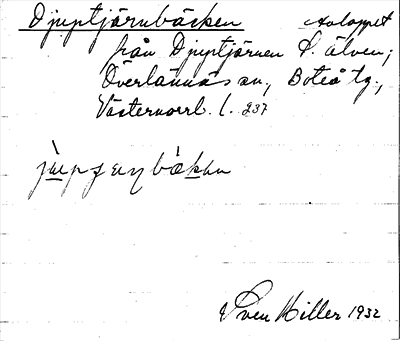 Djuptjärnbäcken Avloppet
från Djuptjärnen t. älven;
Överlännäs sn, Boteå tg.,
Västernorrl. l. 237
Sven Hiller 1932